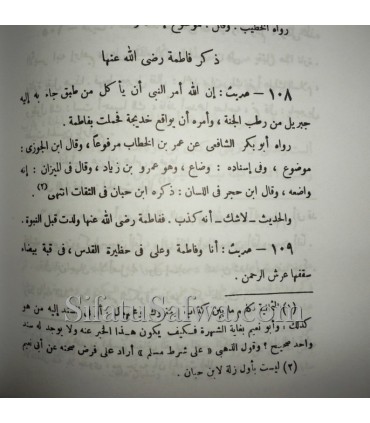 رواه الخطيب . وقال
ذكر فاطمة رضى الله عنها
١٠٨ — حديث : إن الله أمر النبى أن يأكل من طبق جاء به إليه
جبريل من رطب الجنة ، وأمره أن يواقع خديجة فحملت بفاطمة .
رواه أبو بكر الشافعى عن عمر بن الخطاب مرفوعاً ، وقال ابن الجوزى :
موضوع ، وفى إسناده : وضاع ، وهو عمرو بن زياد ، وقال فى الميزان : إنه
واضعه ، وقال ابن حجر فى اللسان : ذكره ابن حبان فى الثقات انتهى (٢) .
والحديث ـ لاشك ـ أنه كذب . ففاطمة رضى الله عنها ولدت قبل النبوة .
١٠٩ — حديث : أنا وفاطمة وعلى فى حظيرة القدس ، فى قبة بيضاء
سقفها عرش الرحمن .
(١)
كذلك . وأبو نعيم بغاية الشهرة فكيف يكون هذا الخبر عنه ولا يوجد له سند
واحد صحيح ؟ وقول الذهبى « على شرط مسلم » أراد على فرض صحته عن أبى نعيم
(٢) ليست بأول زلة لابن حبان .
Sifatusafwa.com